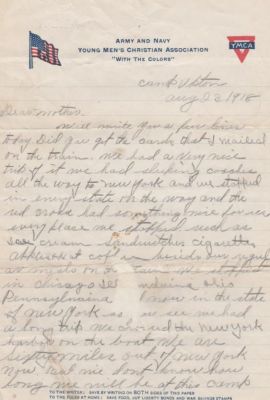 ARMY AND NAVY
YOUNG MEN'S CHRISTIAN ASSOCIATION
"WITH THE COLORS"
YMCA
Camp Upton
Aug 23 1918
Dear mother
Will write you a few lines
today Did you get the cards that I mailed
on the train. we had a very nice
trip of it we had sleeping coaches
all the way to New York and we stopped
in every state on the way and the
red cross had something nice for us
every place we stopped such as
ice cream sandwitches cigarettes
and coffee besids our regular
meals on the train we stopped
in chicago Ill indiana ohio
Pennsylvaina now in the state
of New York as you see we had
a long trip We crossed the New York
harbor on the boat We are
sixty miles out of New York
now, but we dont know how
long we will be at this camp
TO THE WRITER: SAVE BY WRITING ON BOTH SIDES OF THIS PAPER
TO THE FOLKS AT HOME: SAVE FOOD, BUY LIBERTY BONDS AND WAR SAVINGS STAMPS